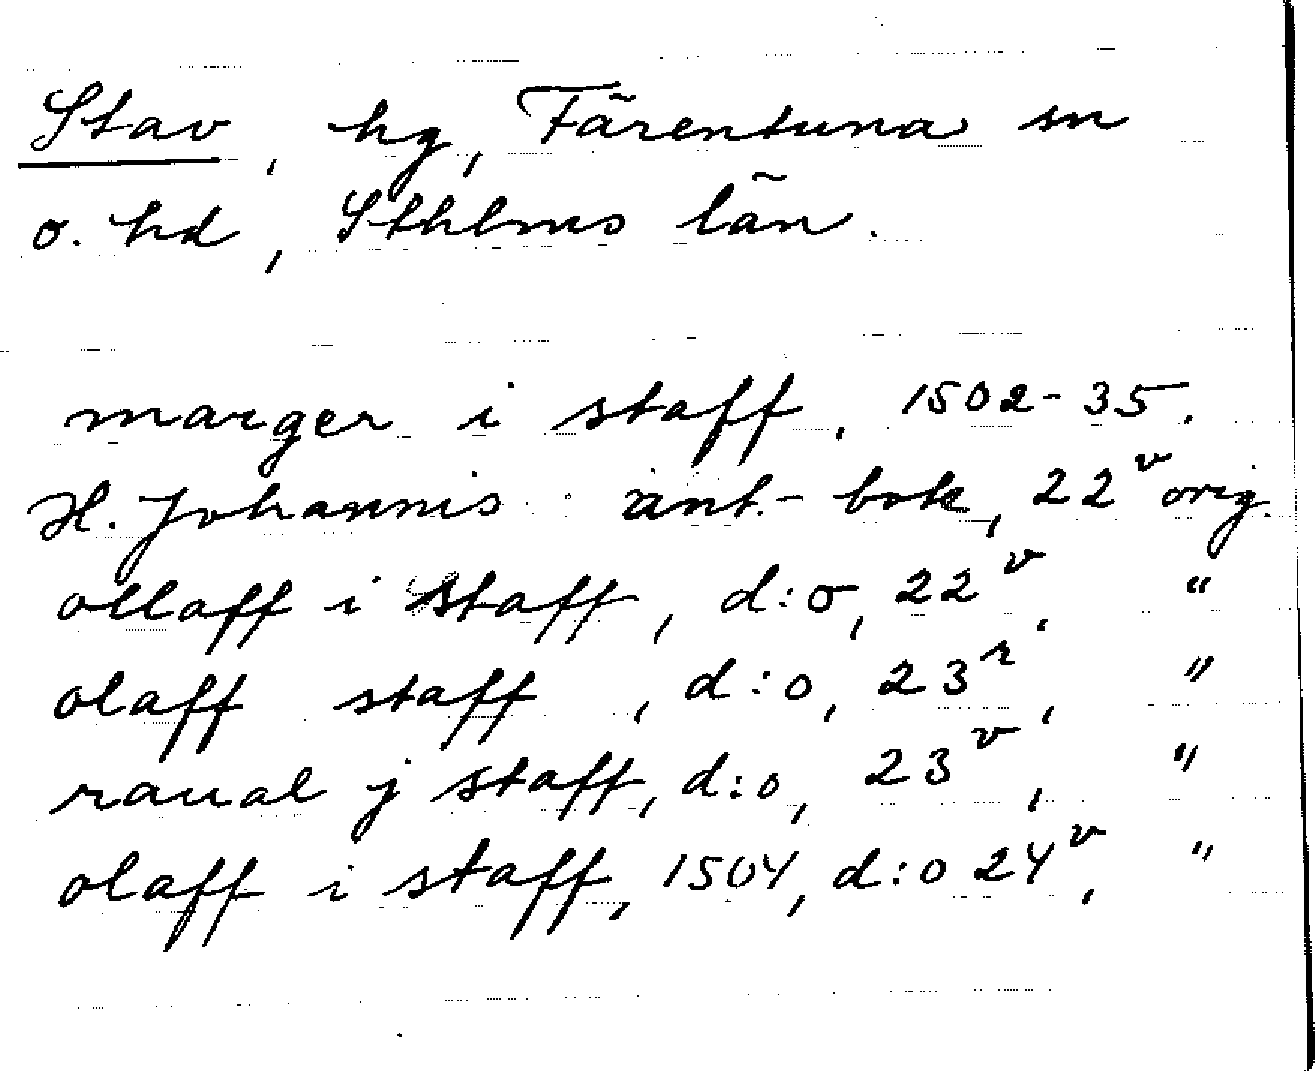 Stav, hg, Färentuna sn
o. hd, Sthlms län.
marger i staff, 1502-35.
H. Johannis: ant.- bok, 22v orig.
ollaff i staff, d:o, 22v, "
olaff staff, d:o, 23r, "
raual j staff, d:o, 23v, "
olaff i staff, 1504, d:o 24v, "